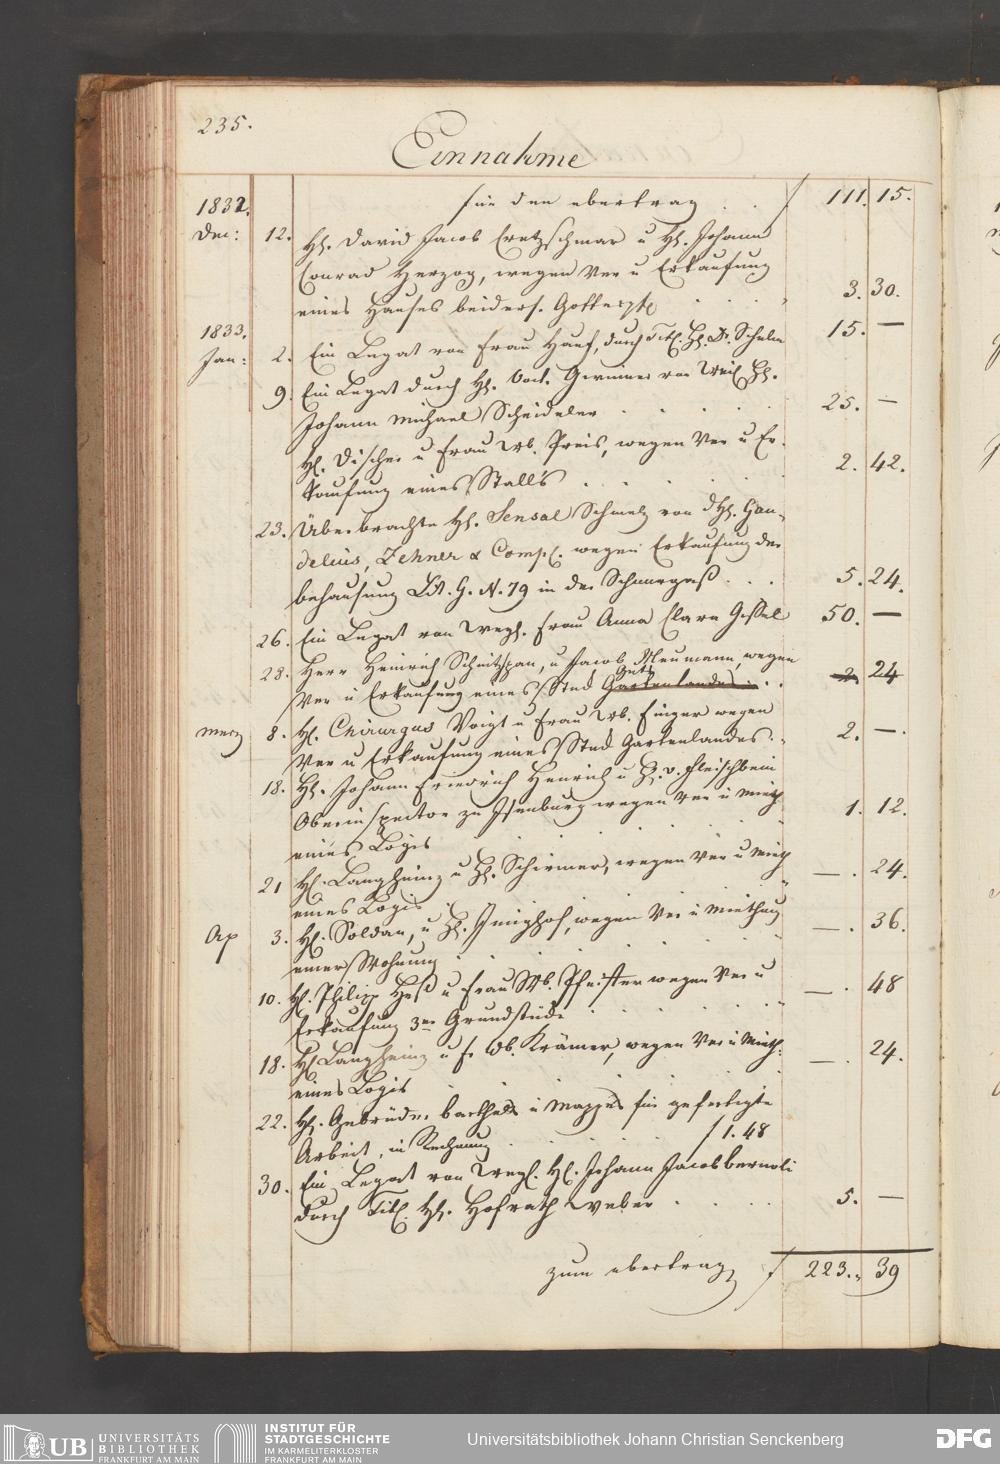 235.
Einnahme
1832. für den ebertrag . . f 111. 15.
Dec: 12. HH. David Jacob Cretzschmar u HH. Johann
Conrad Herzog, wegen Ver u Erkaufung
eines Hauses beiders. 3. 30.
1833.
Jan: 2. Ein Legat von Frau Hauf, durch Titl. HH. Dr. Schulin 15. —
9. Ein Legat durch HH. Doct. von Weil. HH.
Johann Michael Scheideler . . . . . 25. —
HH. Discher u Frau Wb. Preis, wegen Ver u Er-
kaufung eines Stalls . . . . . 2. 42.
23. Überbrachte HH. Sensal Schmelz von dHH. Gon-
delius, Zehner & Comp. wegen Erkaufung der
behausung Litt. G. N. 79 in der Schnurgaß . . . 5. 24.
26. Ein Legat von Wegl. Frau Anna Clara Gissel 50. —
28. Herr Heinrich Schnitzspan, u Jacob Neumann, wegen
Ver u Erkaufung eines Stück Guts Gartenlandes . . . 2. 24
merz 8. HH. Chirurgus Voigt u Frau Wb. Finger wegen
Ver u Erkaufung eines Stück Gartenlandes . . 2. —.
18. HH. Johann Friedrich Henrich u HH. v. Fleischbein
Oberinspector zu Isenburg wegen Ver u Mieth
eines Logis 1. 12.
21 HH. Langheinz u HH. Schirmer, wegen Ver u Mieth
eines Logis — . 24.
Ap 3. HH. Soldan, u HH. Junghof, wegen Ver u Miethung
einer Wohnung — . 36.
10. HH. Philipp Heß u Frau Wb. Pfeister wegen Ver u
Erkaufung 3er Grundstücke — . 48
18. HH Langheinz u Fr Wb. Krämer, wegen Ver u Mieth.
eines Logis — . 24.
22. HH. Gebrüder barthels u Mappes für gefertigte
Arbeit, in Rechnung . . . . f 1. 48
30. Ein Legat von Wegl. HH. Johann Jacob bernoli
durch Titl. HH. Hofrath Weber . . . . 5. —
zum ebertrag f 223.. 39
UB UNIVERSITÄTS
BIBLIOTHEK
FRANKFURT AM MAIN
INSTITUT FÜR
STADTGESCHICHTE
IM KARMELITERKLOSTER
FRANKFURT AM MAIN
Universitätsbibliothek Johann Christian Senckenberg
DFG